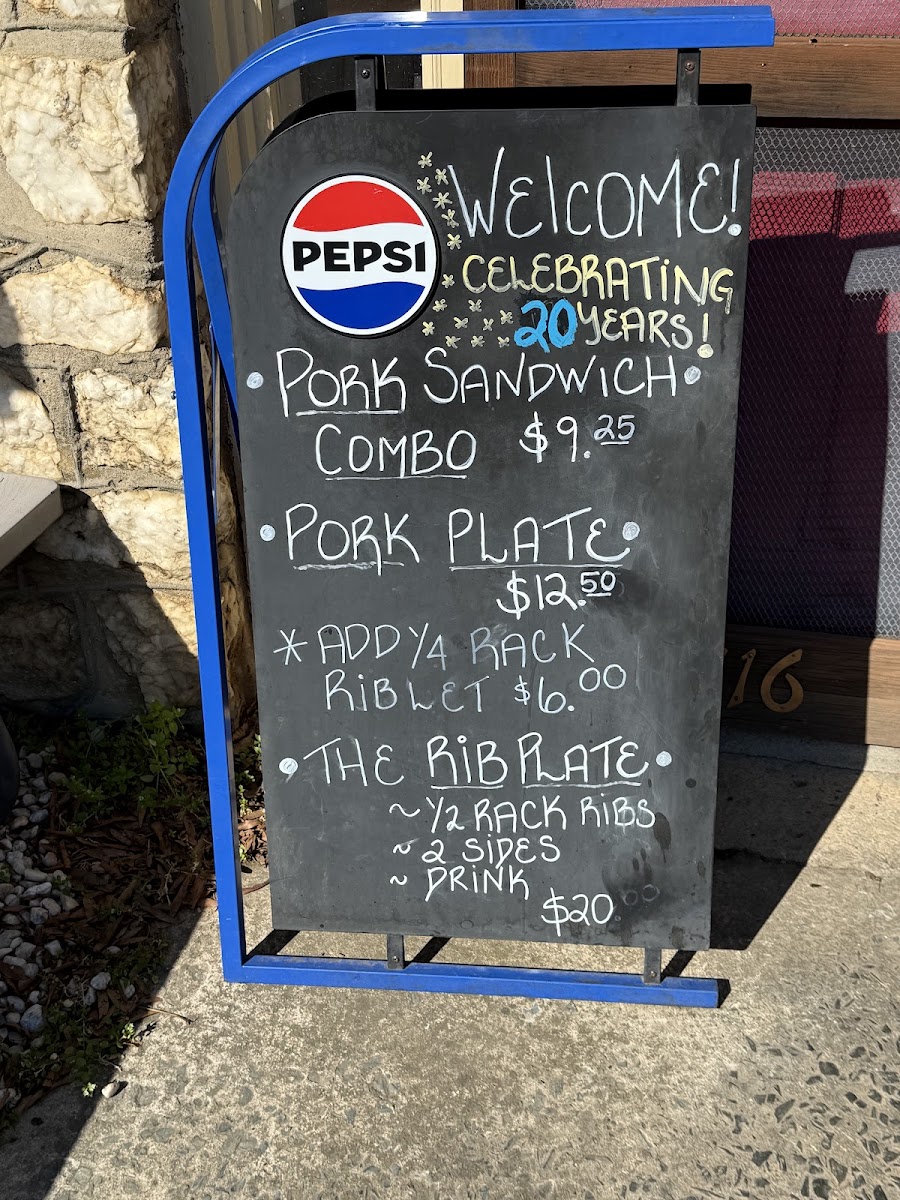 PEPSI
WELCOME!
CELEBRATING
20 YEARS!
PORK SANDWICH
COMBO $9.25
PORK PLATE
$12.50
* ADD 1/4 RACK
RIBLET $6.00
THE RIB PLATE
~ 1/2 RACK RIBS
~ 2 SIDES
~ DRINK
$20.00
16